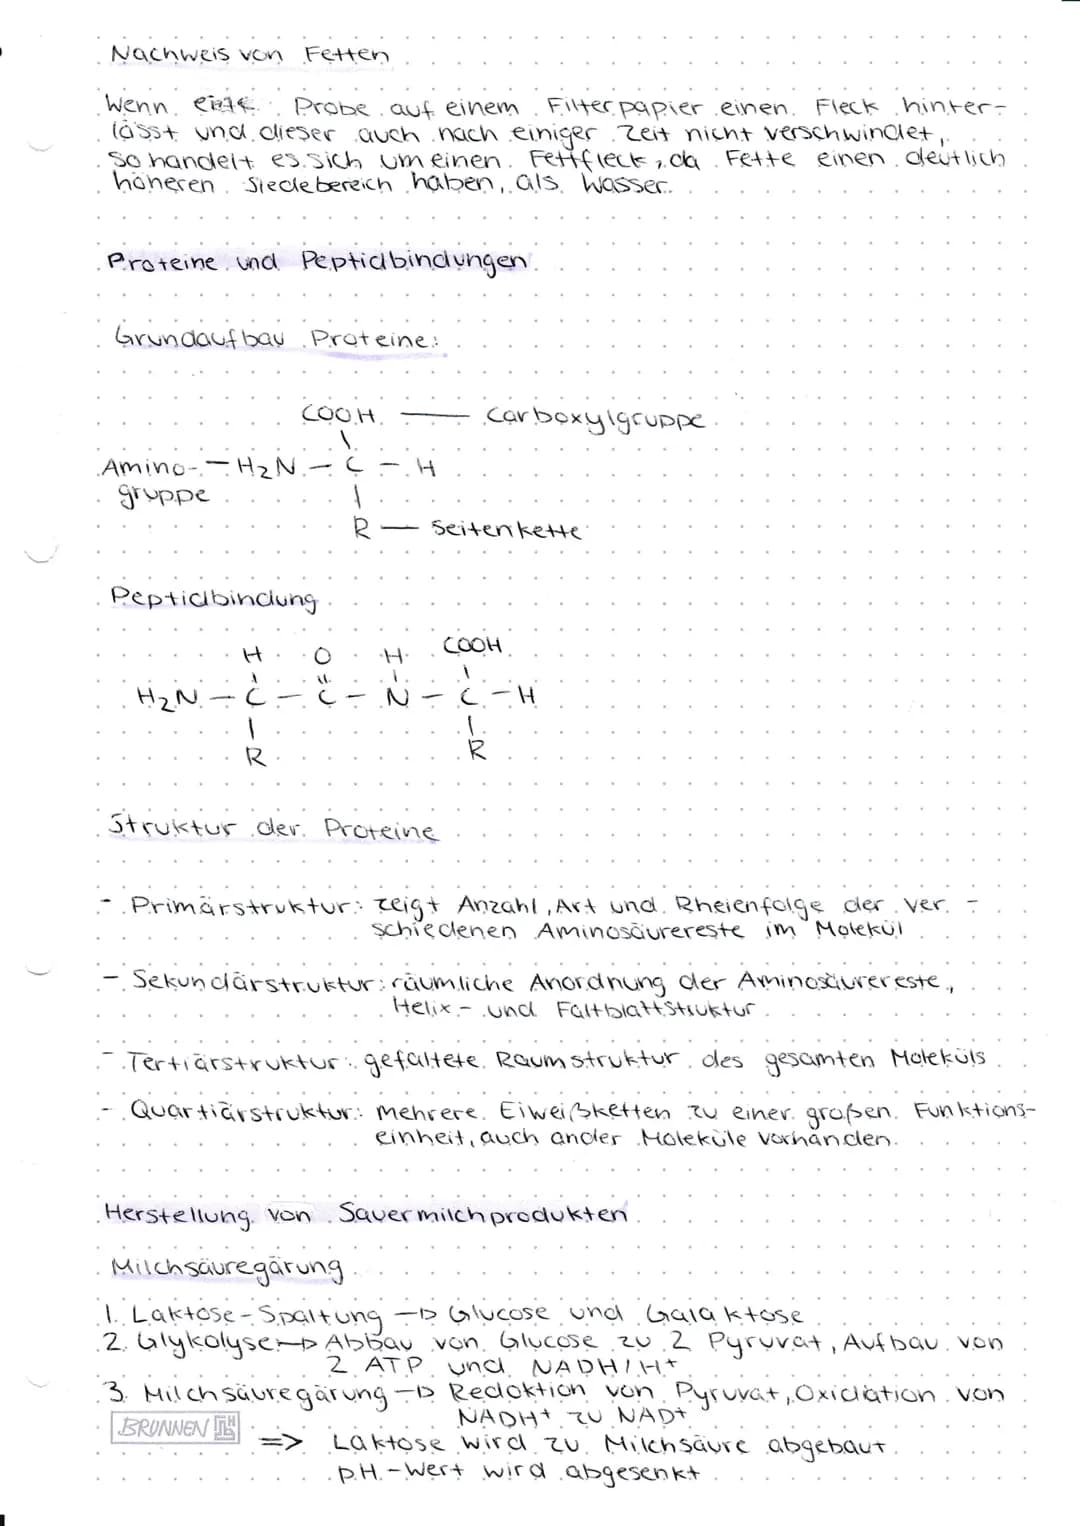 Nachweis von Fetten
Wenn eine Probe auf einem Filterpapier einen Fleck hinter-
lässt und dieser auch nach einiger Zeit nicht verschwindet,
so handelt es sich um einen Fettfleck, da Fette einen deutlich
höheren Siedebereich haben, als Wasser.
Proteine und Peptidbindungen
Grundaufbau Proteine:
COOH — Carboxylgruppe
|
Amino- — H₂N — C — H
gruppe |
R — Seitenkette
Peptidbindung
H O H COOH
| || | |
H₂N — C — C — N — C — H
| |
R R
Struktur der Proteine
- Primärstruktur: zeigt Anzahl, Art und Rheienfolge der ver-
schiedenen Aminosäurereste im Molekül
- Sekundärstruktur: räumliche Anordnung der Aminosäurereste,
Helix- und Faltblattstruktur
- Tertiärstruktur: gefaltete Raumstruktur des gesamten Moleküls
- Quartiärstruktur: Mehrere Eiweißketten zu einer großen Funktions-
einheit, auch ander Moleküle vorhanden.
Herstellung von Sauermilchprodukten
Milchsäuregärung
1. Laktose-Spaltung → Glucose und Galaktose
2. Glykolyse → Abbau von Glucose zu 2 Pyruvat, Aufbau von
2 ATP und NADH/H⁺
3. Milchsäuregärung → Redoktion von Pyruvat, Oxidiation von
NADH⁺ zu NAD⁺
BRUNNEN
=> Laktose wird zu Milchsäure abgebaut
pH-Wert wird abgesenkt